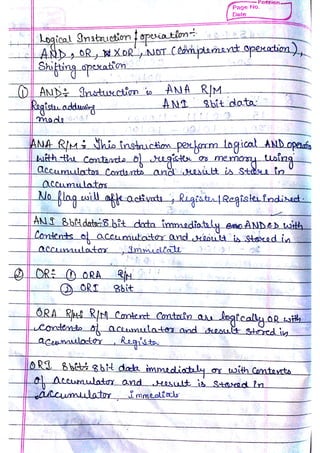 Page No.
Date
Logical Instruction / operation:-
AND, OR, XOR, NOT (Complement operation),
Shifting operation
① AND:- Insturction is ANA R/M
Register addressing ANI 8bit data
mode
ANA R/M:- This instruction perform logical AND operation
with the Contents of register or memory using
accumulator Contents and result is store in
accumulator
No flag will affe activate, Register/Register Indirect.
ANI 8bit data:- 8 bit data immediately ANDOD with
Contents of accumulator and result is stored in
accumulator, Immediate
② OR:- ① ORA R/M
② ORI 8bit
ORA R/M:- R/M Content Contain are logically OR with
contents of accumulator and result stored in
accumulator, Register
ORI 8bit:- 8bit data immediately or with Contents
of Accumulator and result is stored In
accumulator, Immediate